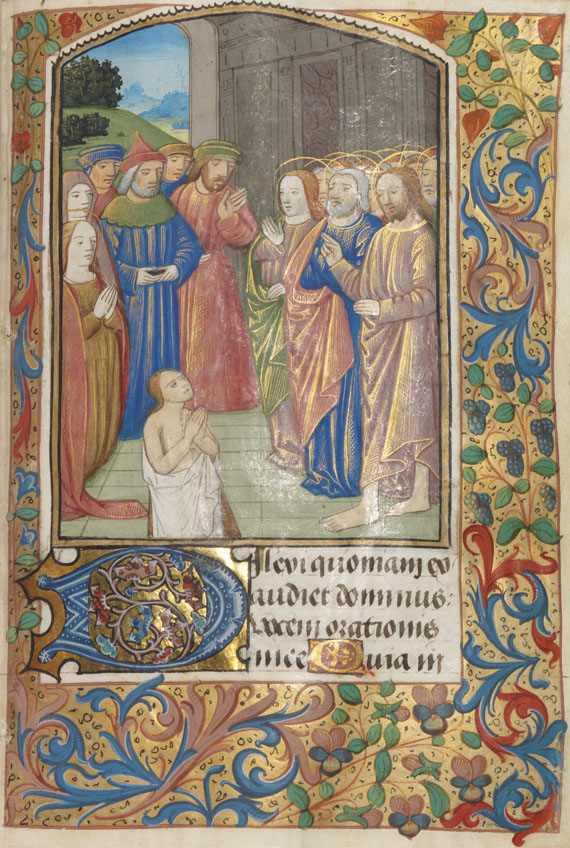 Dilexi quoniam ex
audiet dominus
vocem orationis
mee Quia in